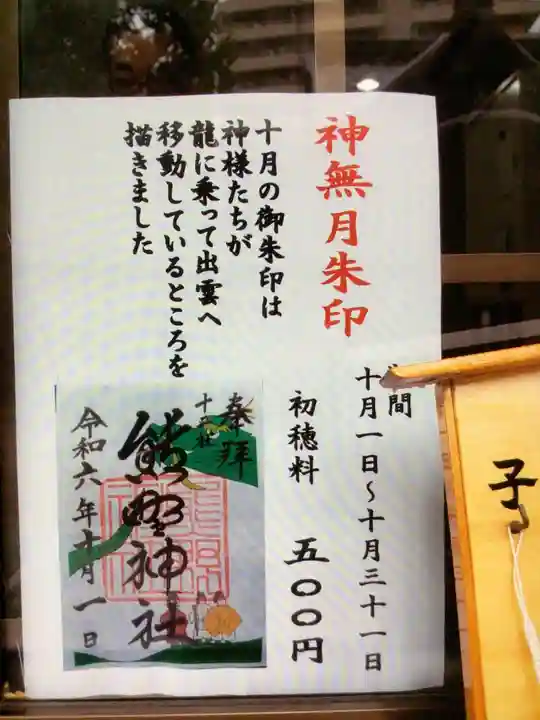 神無月朱印
十月の御朱印は
神様たちが
龍に乗って出雲へ
移動しているところを
描きました
間
十月一日〜十月三十一日
初穂料 五〇〇円
奉拝
十二社
熊野神社
令和六年十月一日
子